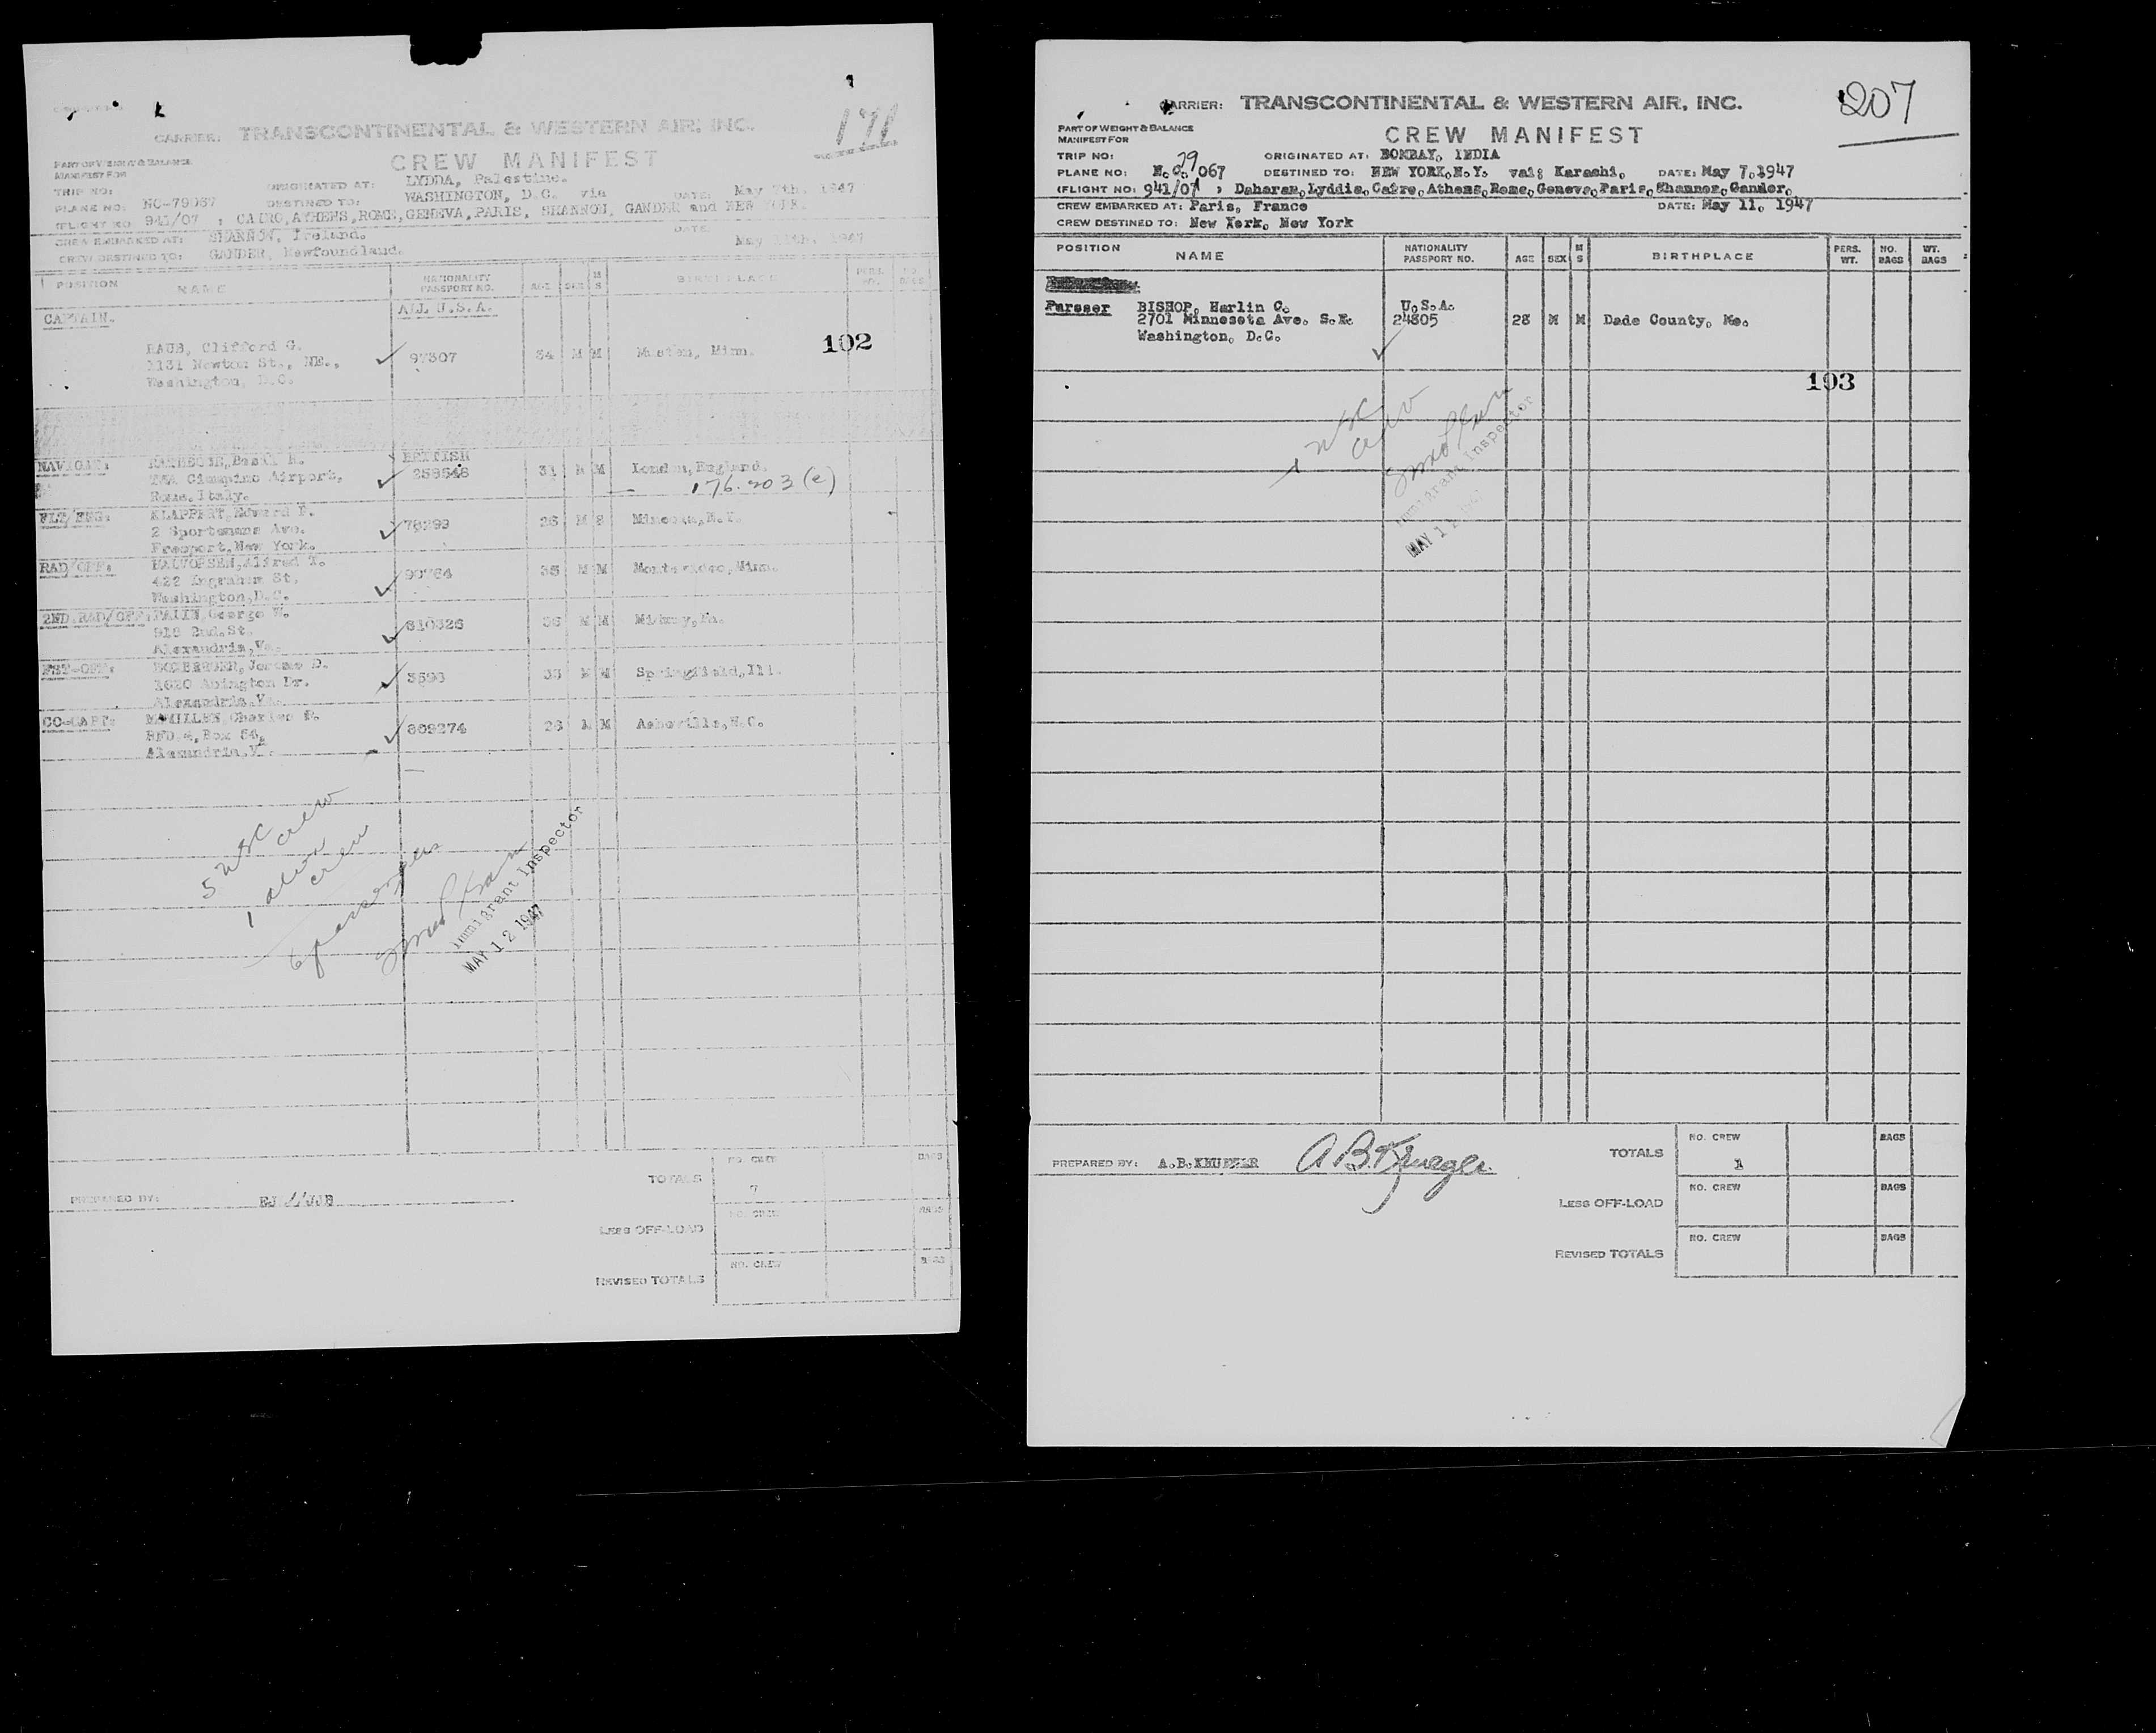 171
CARRIER: TRANSCONTINENTAL & WESTERN AIR, INC.
CREW MANIFEST
PART OF WEIGHT & BALANCE
MANIFEST FOR
TRIP NO: ORIGINATED AT: LYDDA, Palestine.
PLANE NO: NC-79067 DESTINED TO: WASHINGTON, D.C. via DATE: May 7th, 1947
(FLIGHT NO 941/07 ; CAIRO, ATHENS, ROME, GENEVA, PARIS, SHANNON, GANDER and NEW YORK.
CREW EMBARKED AT: SHANNON, Ireland. DATE: May 1947
CREW DESTINED TO: GANDER, Newfoundland.
POSITION NAME NATIONALITY PASSPORT NO. AGE SEX M S BIRTHPLACE PERS. WT. NO. BAGS
CAPTAIN. ALL U.S.A.
RAUB, Clifford G.
1131 Newton St., NE., 97307 34 M M Minn. 102
Washington, D.C.
NAVIGAT: Basil BRITISH
TWA Ciampino Airport, 258548 31 M M London, England.
Rome, Italy. 176.203 (e)
FLT/ENG: KLAPPERT, Edward F.
2 Sportsmans Ave. 78299 26 M S Mineola, N.Y.
Freeport, New York.
RAD/OFF: HALVORSEN, Alfred T.
422 Ingraham St, 35 M M Montevideo, Minn.
Washington, D.C.
2ND RAD/OFF: George W.
918 2nd. St. 810326 36 M M
Alexandria, Va.
FST-OFF: Jerome D.
1620 Abington Dr. 3593 33 M M Springfield, Ill.
Alexandria, Va.
CO-CAPT: McMILLEN, Charles
RFD 4, Box 54, 869274 26 M M Asheville, N.C.
Alexandria, Va.
5 USC crew
1 alien crew
6 passengers
Immigrant Inspector
MAY 12 1947
TOTALS NO. CREW 7 BAGS
PREPARED BY:
LESS OFF-LOAD NO. CREW BAGS
REVISED TOTALS NO. CREW BAGS
207
CARRIER: TRANSCONTINENTAL & WESTERN AIR, INC.
PART OF WEIGHT & BALANCE
MANIFEST FOR
CREW MANIFEST
TRIP NO: ORIGINATED AT: BOMBAY, INDIA
PLANE NO: N.C. 79067 DESTINED TO: NEW YORK, N.Y. vai: Karachi, DATE: May 7, 1947
(FLIGHT NO: 941/07 , Daharan, Lyddia, Cairo, Athens, Rome, Geneva, Paris, Shannon, Gander,
CREW EMBARKED AT: Paris, France DATE: May 11, 1947
CREW DESTINED TO: New York, New York
POSITION NAME NATIONALITY PASSPORT NO. AGE SEX M S BIRTHPLACE PERS. WT. NO. BAGS WT. BAGS
Purser BISHOP, Harlin C. U.S.A.
2701 Minnesota Ave. S.E. 24805 28 M M Dade County, Mo.
Washington, D.C.
103
1 USC
crew
Immigrant Inspector
MAY 12 1947
TOTALS NO. CREW 1 BAGS
PREPARED BY: A.B.KRUEGER A B Krueger
LESS OFF-LOAD NO. CREW BAGS
REVISED TOTALS NO. CREW BAGS